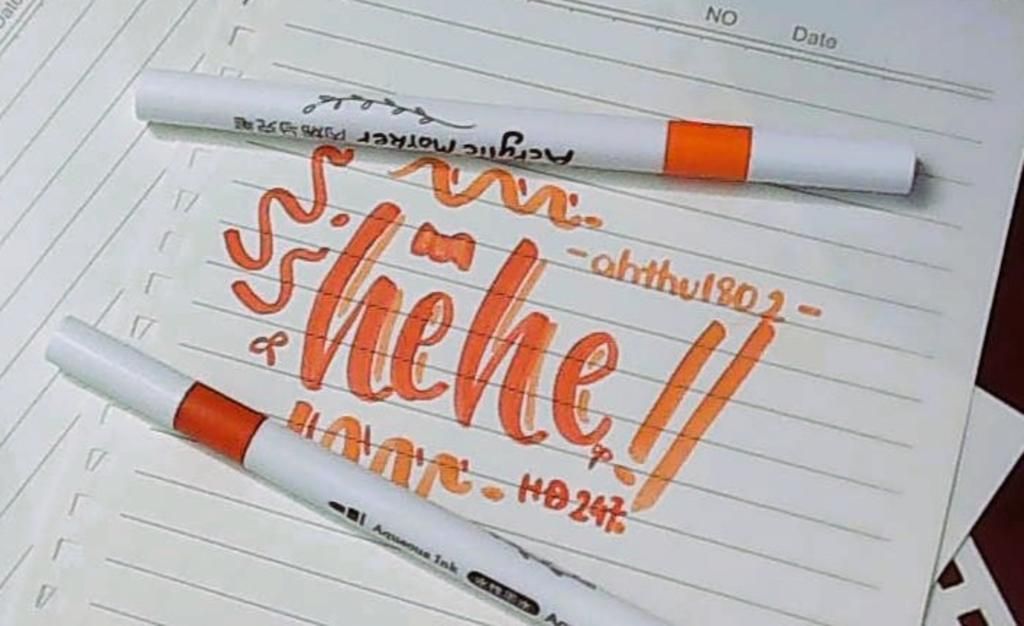 NO Date
Acrylic Marker
-ahthu1802-
hehe!!
HĐ247
Aqueous Ink